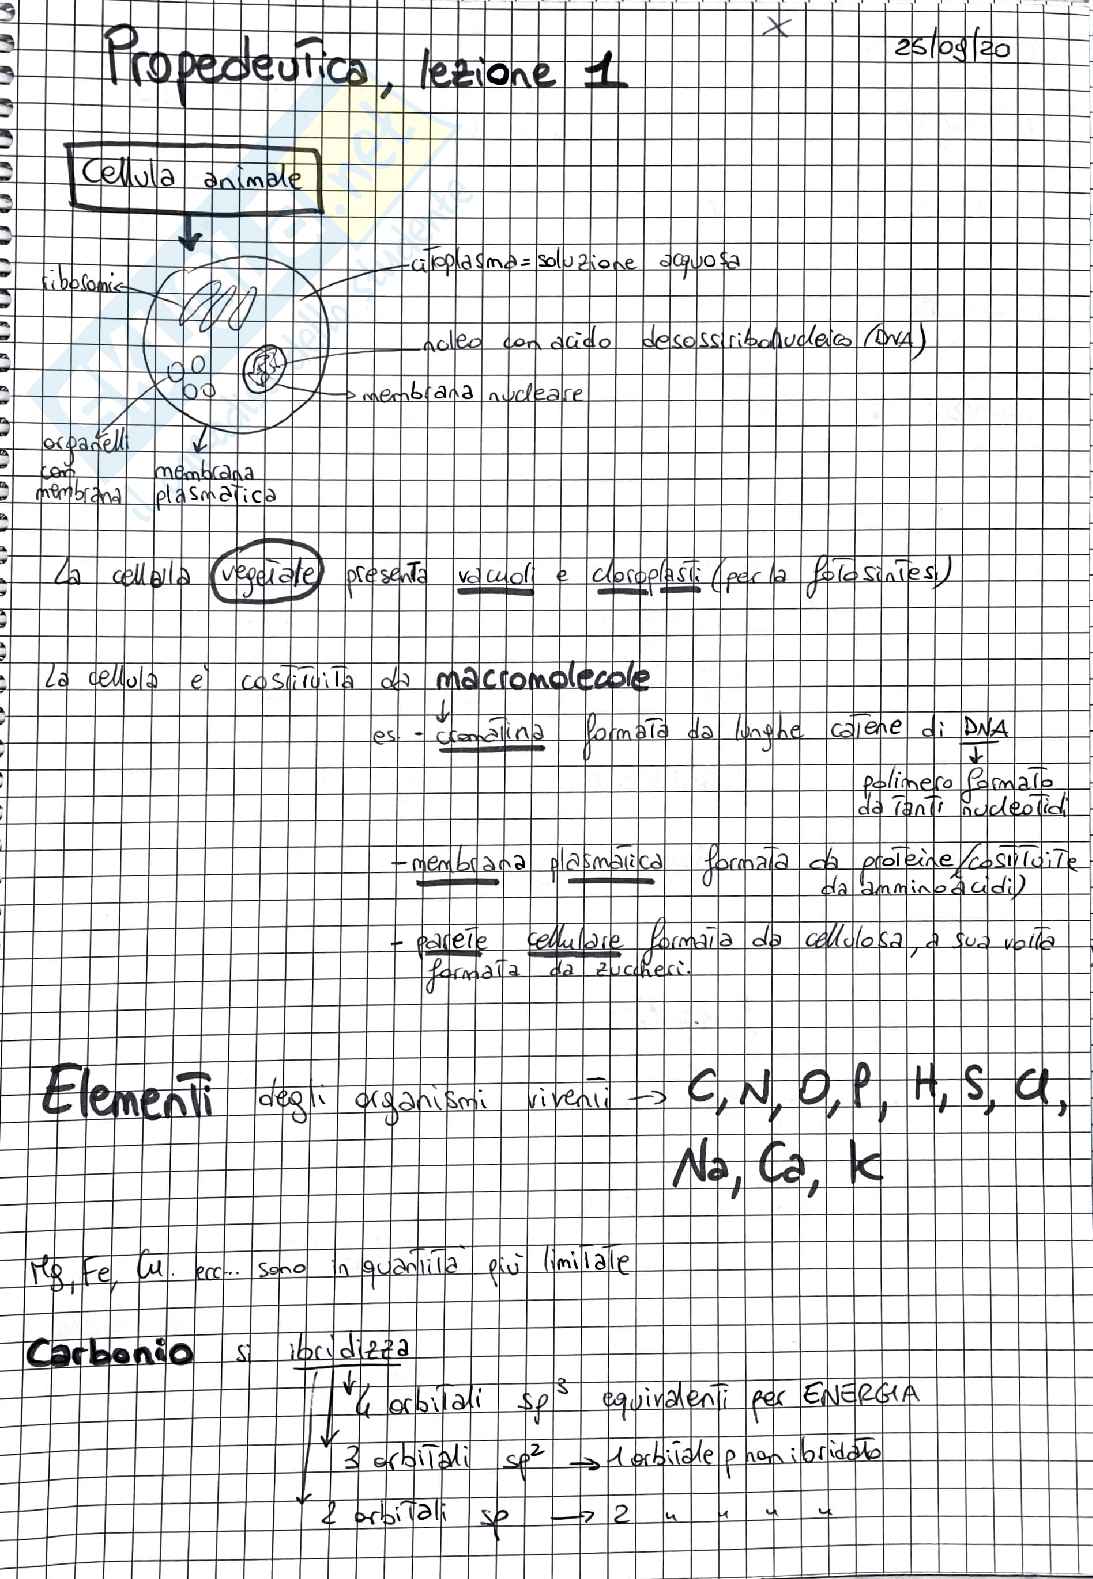 25/09/20
Propedeutica, lezione 1
Cellula animale
citoplasma = soluzione acquosa
ribosomi
nucleo con acido desossiribonucleico (DNA)
membrana nucleare
organelli
con
membrana
membrana
plasmatica
La cellula vegetale presenta vacuoli e cloroplasti (per la fotosintesi)
La cellula è costituita da macromolecole
es. - cromatina formata da lunghe catene di DNA
polimero formato
da tanti nucleotidi
- membrana plasmatica formata da proteine (costituite
da amminoacidi)
- parete cellulare formata da cellulosa, a sua volta
formata da zuccheri.
Elementi degli organismi viventi → C, N, O, P, H, S, Cl,
Na, Ca, K
Mg, Fe, Cu. ecc... sono in quantità più limitate
Carbonio si ibridizza
4 orbitali sp³ equivalenti per ENERGIA
3 orbitali sp² → 1 orbitale p non ibridato
2 orbitali sp → 2 " " " "